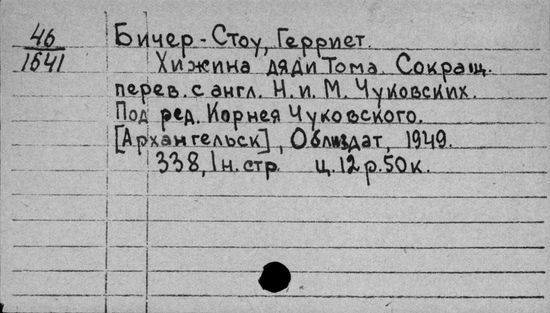 46 Бичер-Стоу, Герриет.
1641 Хижина дяди Тома. Сокращ.
перев. с англ. Н. и М. Чуковских.
Под ред. Корнея Чуковского.
[Архангельск], Облиздат, 1949.
338, 1 н. стр. ц. 12 р. 50 к.